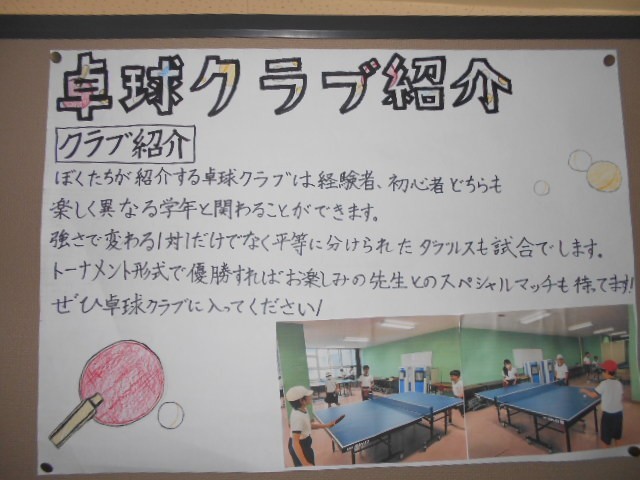 卓球クラブ紹介
クラブ紹介
ぼくたちが紹介する卓球クラブは経験者、初心者どちらも
楽しく異なる学年と関わることができます。
強さで変わる1対1だけでなく平等に分けられたダブルスも試合でします。
トーナメント形式で優勝すればお楽しみの先生とのスペシャルマッチも待ってます!
ぜひ卓球クラブに入ってください!